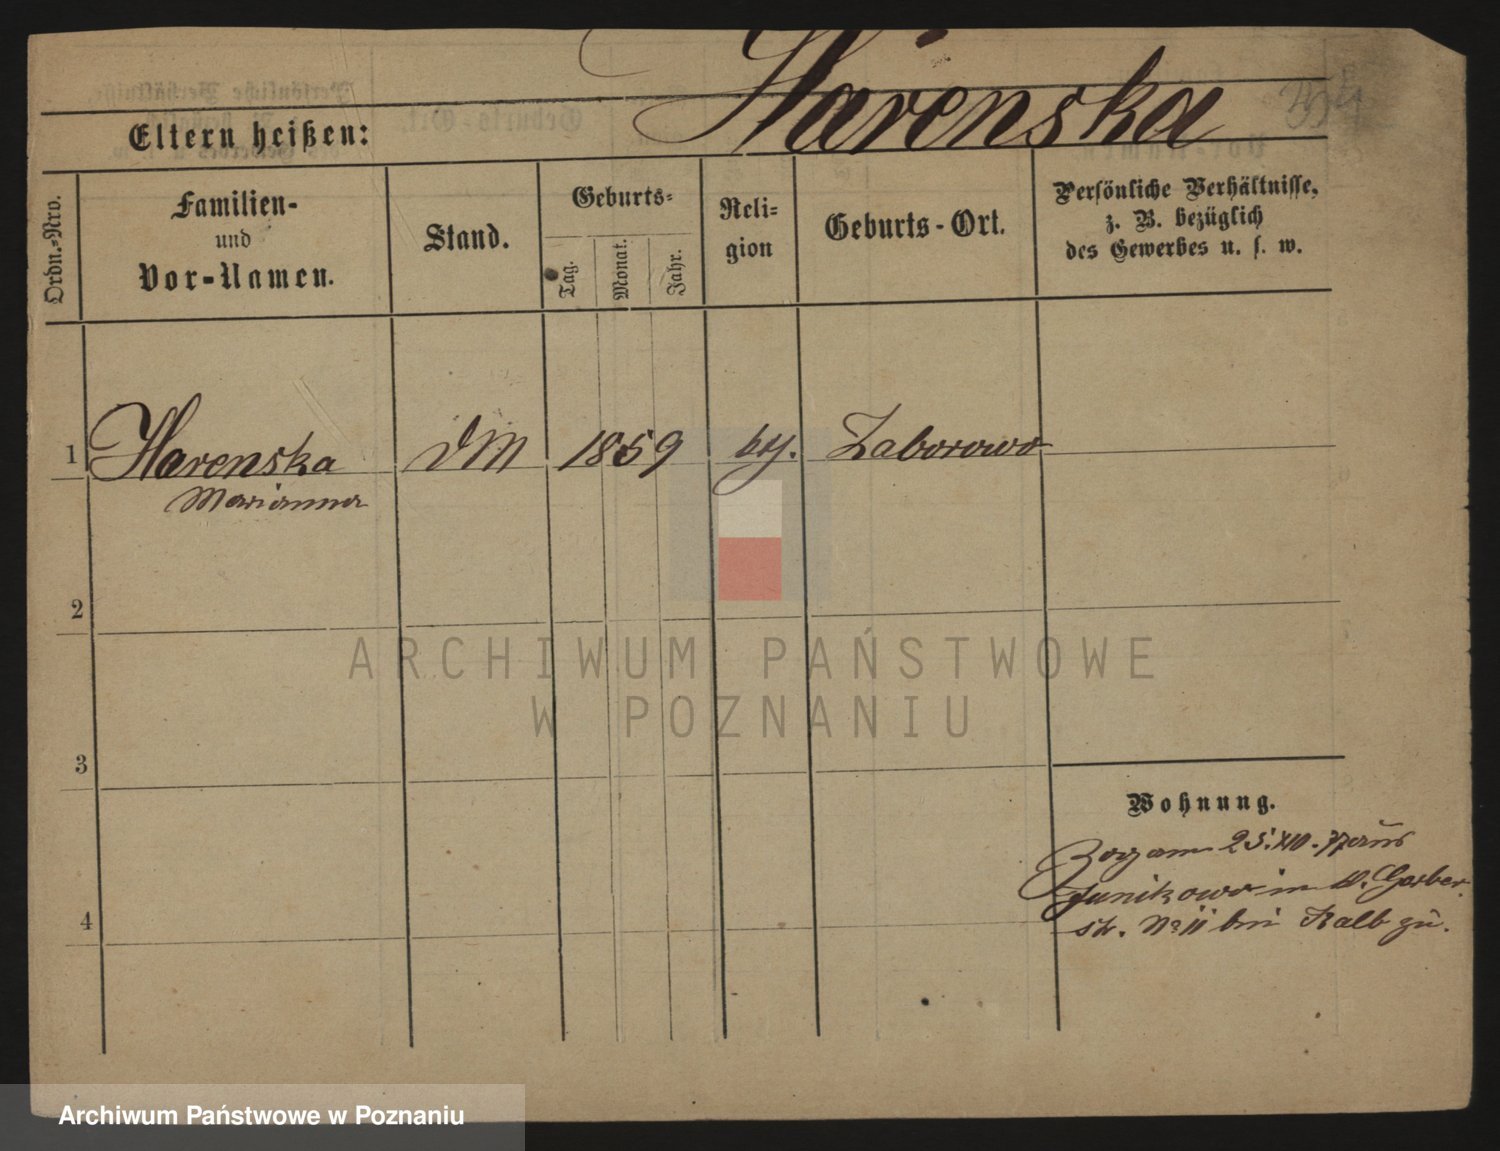 Harenska
Eltern heißen:
Ordn.-Nro.
Familien-
und
Vor-Namen.
Stand.
Geburts-
Tag.
Monat.
Jahr.
Reli-
gion
Geburts-Ort.
Persönliche Verhältnisse,
z. B. bezüglich
des Gewerbes u. s. w.
1 Harenska DM 1859 Zaborowo
Marianna
2
3
4
Wohnung.
Zog am 25. XII. 77 aus
Junikowo in W. Gerber
str. No 11 bei Kalb zu.
ARCHIWUM PAŃSTWOWE
W POZNANIU
Archiwum Państwowe w Poznaniu